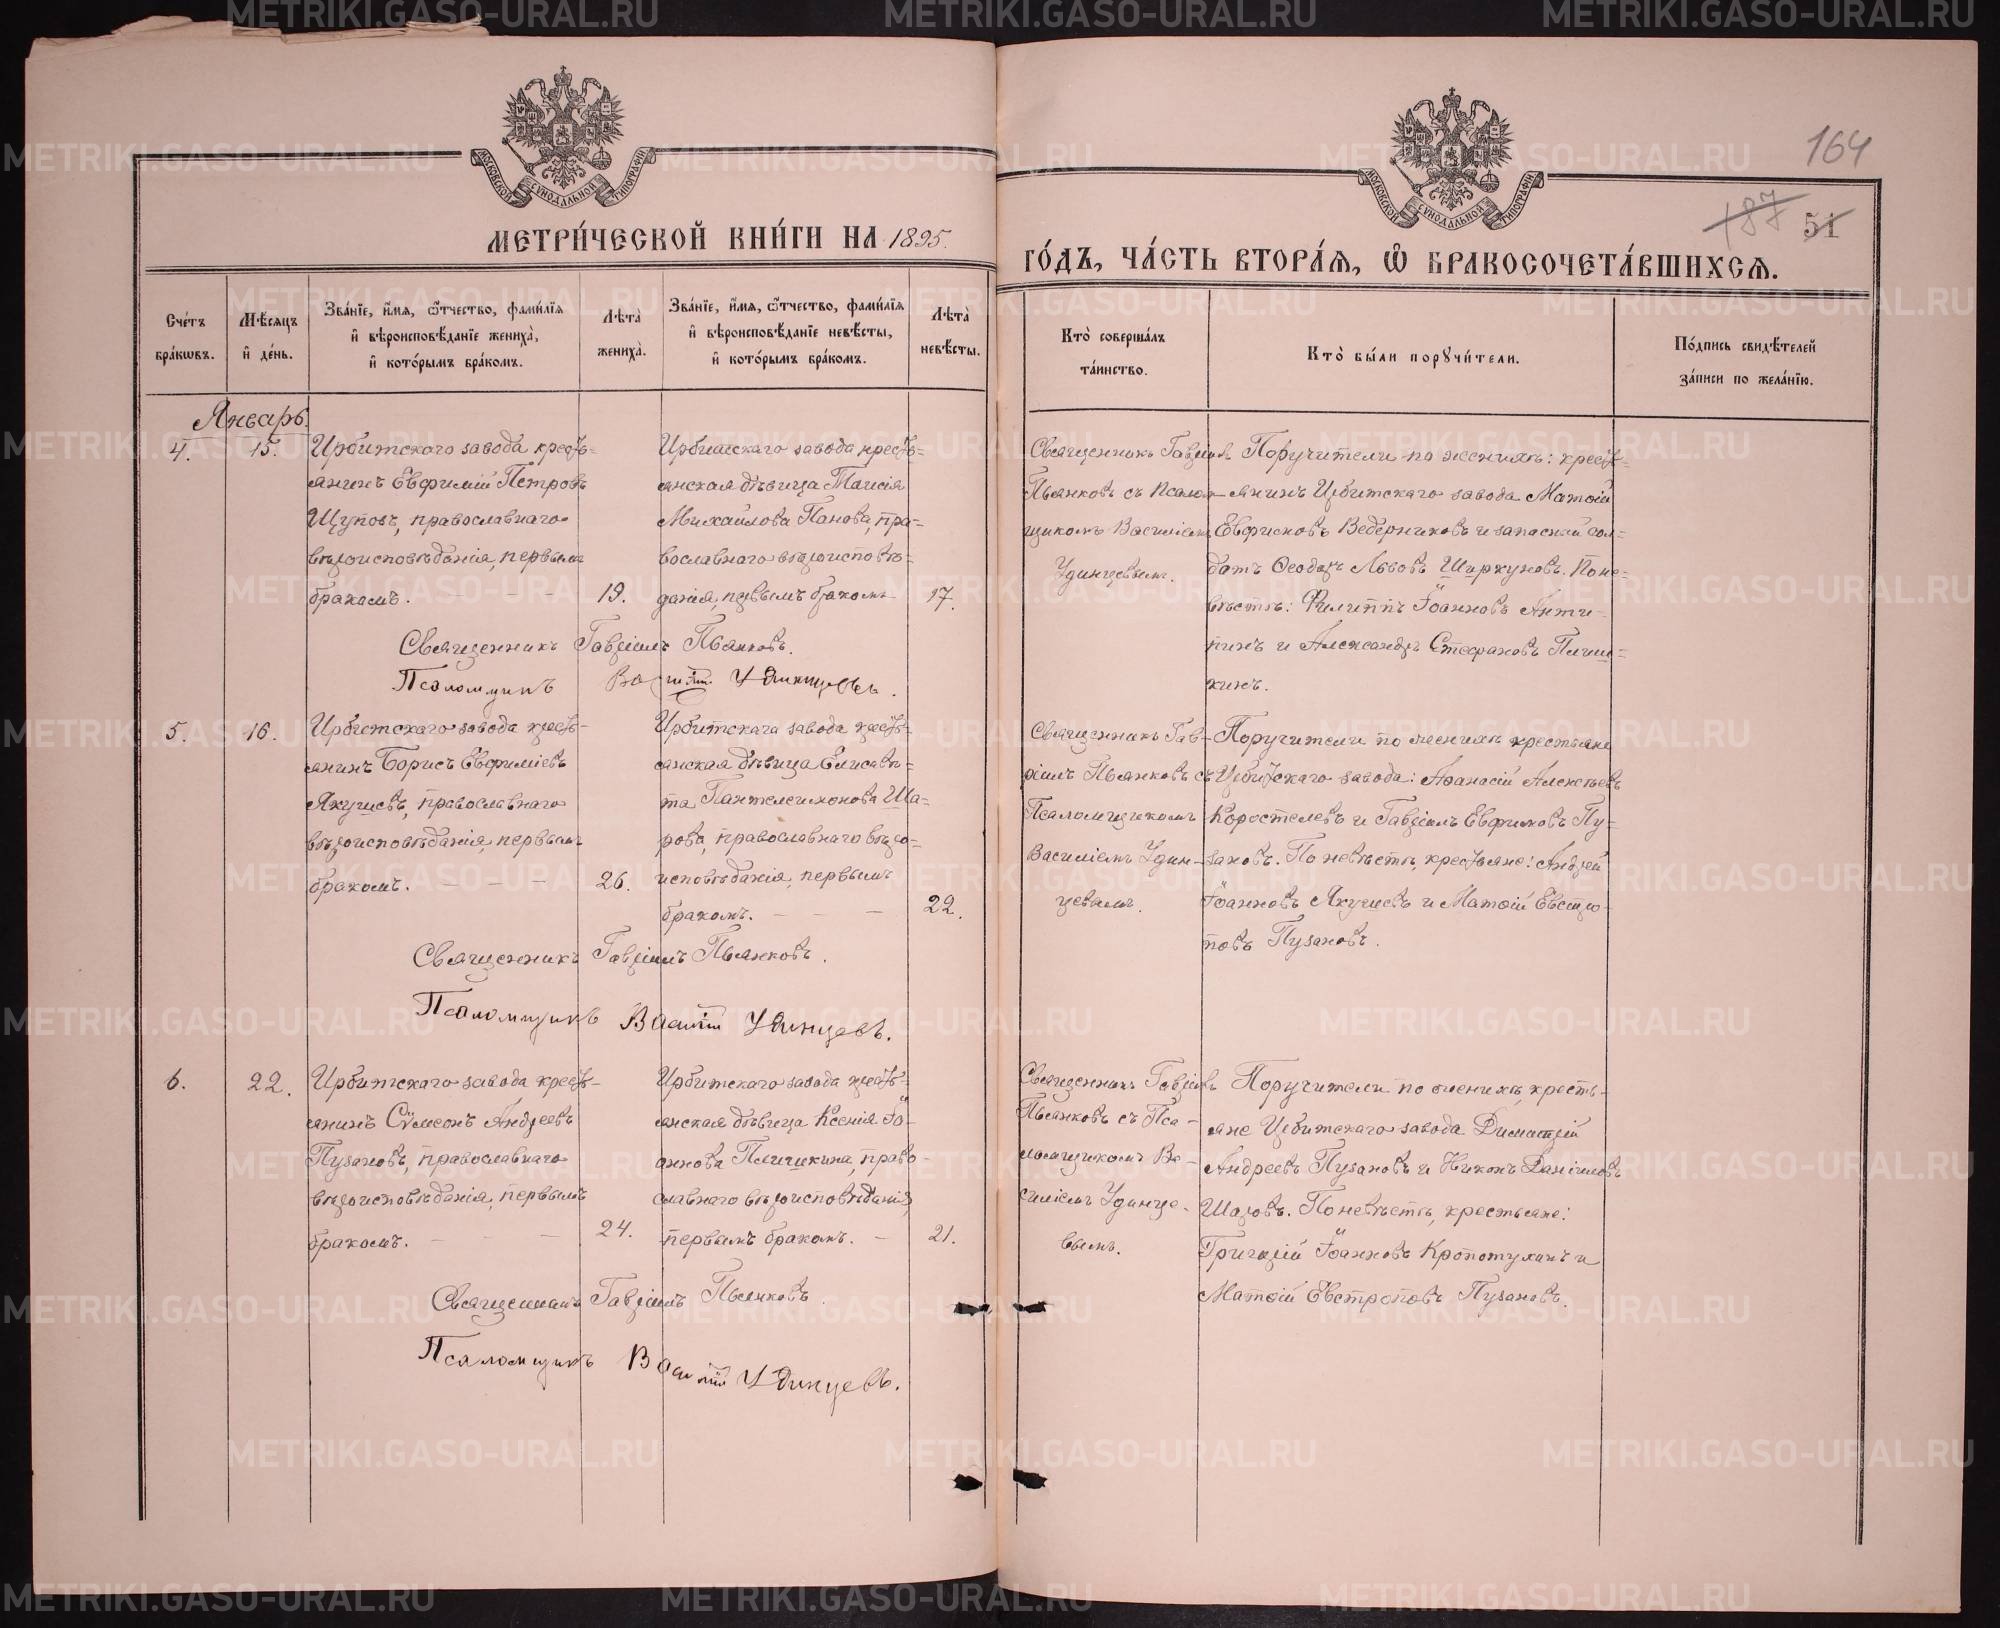 164
187 51
МЕТРИ́ЧЕСКОЙ КНИ́ГИ НА 1895.
ГО́ДЪ, ЧА́СТЬ ВТОРА́Я, Ѡ҆ БРАКОСОЧЕТА́ВШИХСЯ.
МОСКОВСКОЙ СѴНОДАЛЬНОЙ ТИПОГРАФІИ
МОСКОВСКОЙ СѴНОДАЛЬНОЙ ТИПОГРАФІИ
Сче́тъ бра́кωвъ.
Мѣ́сяцъ и҆ де́нь.
Зва́нїе, и҆́мя, ѻ҆́тчество, фами́лїя и҆ вѣроисповѣ́данїе жениха̀, и҆ кото́рымъ бра́комъ.
Лѣ́та жениха̀.
Зва́нїе, и҆́мя, ѻ҆́тчество, фами́лїя и҆ вѣроисповѣ́данїе невѣ́сты, и҆ кото́рымъ бра́комъ.
Лѣ́та невѣ́сты.
Кто̀ соверша́лъ та́инство.
Кто̀ бы́ли порꙋчи́тели.
По́дпись свидѣ́телей за́писи по жела́нїю.
Январь.
4.
15.
Ирбитскаго завода кресть-
янинъ Евфимій Петровъ
Щуповъ, православнаго
вѣроисповѣданія, первымъ
бракомъ.
19.
Ирбитскаго завода кресть-
янская дѣвица Таисія
Михайлова Панова, пра-
вославнаго вѣроисповѣ-
данія, первымъ бракомъ
17.
Священникъ Гавріилъ
Пьянковъ съ Псалом-
щикомъ Василіемъ
Удинцевымъ.
Поручители по женихѣ: кресть-
янинъ Ирбитскаго завода Матѳій
Евфимовъ Ведерниковъ и запасный сол-
датъ Ѳеодоръ Львовъ Шаркуновъ. По не-
вѣстѣ: Филиппъ Іоанновъ Анти-
пинъ и Александръ Стефановъ Плиш-
кинъ.
Священникъ Гавріилъ Пьянковъ.
Псаломщикъ Василій Удинцевъ.
5.
16.
Ирбитскаго завода кресть-
янинъ Борисъ Евфиміевъ
Якушевъ, православнаго
вѣроисповѣданія, первымъ
бракомъ.
26.
Ирбитскаго завода кресть-
янская дѣвица Елисаве-
та Пантелеимонова Ша-
рова, православнаго вѣро-
исповѣданія, первымъ
бракомъ.
22.
Священникъ Гав-
ріилъ Пьянковъ съ
Псаломщикомъ
Василіемъ Удин-
цевымъ.
Поручители по женихѣ крестьяне
Ирбитскаго завода: Аѳанасій Алексѣевъ
Коростелевъ и Гавріилъ Евфимовъ Пу-
зановъ. По невѣстѣ, крестьяне: Андрей
Іоанновъ Якушевъ и Матѳій Евстро-
повъ Пузановъ.
Священникъ Гавріилъ Пьянковъ.
Псаломщикъ Василій Удинцевъ.
6.
22.
Ирбитскаго завода кресть-
янинъ Сѵмеонъ Андреевъ
Пузановъ, православнаго
вѣроисповѣданія, первымъ
бракомъ.
24.
Ирбитскаго завода кресть-
янская дѣвица Ксенія Іо-
аннова Плишкина, право-
славнаго вѣроисповѣданія,
первымъ бракомъ.
21.
Священникъ Гавріилъ
Пьянковъ съ Пса-
ломщикомъ Ва-
силіемъ Удинце-
вымъ.
Поручители по женихѣ, кресть-
яне Ирбитскаго завода Димитрій
Андреевъ Пузановъ и Никонъ Даніиловъ
Шаровъ. По невѣстѣ, крестьяне:
Григорій Іоанновъ Кропотухинъ и
Матѳій Евстроповъ Пузановъ.
Священникъ Гавріилъ Пьянковъ
Псаломщикъ Василій Удинцевъ.
METRIKI.GASO-URAL.RU